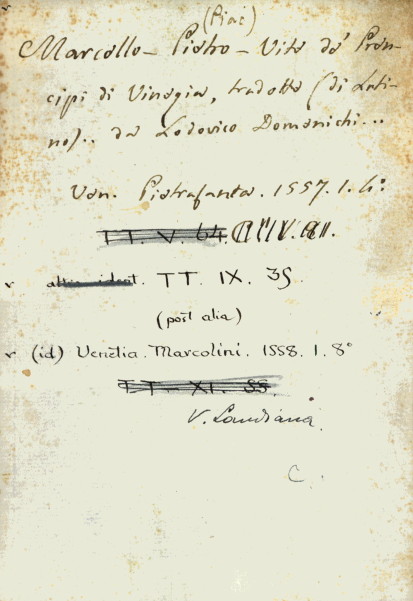 (Piac)
Marcello - Pietro - Vite de' Pren-
cipi di Vinegia, tradotte (di Lati-
no).. da Lodovico Domenichi...
Ven. Pietrasanta. 1557. 1. 4°
TT. V. 64.
TT. IX. 35
(post alia)
(id) Venetia. Marcolini. 1558. 1. 8°
TT. XI. 88
V. Landiana
C.